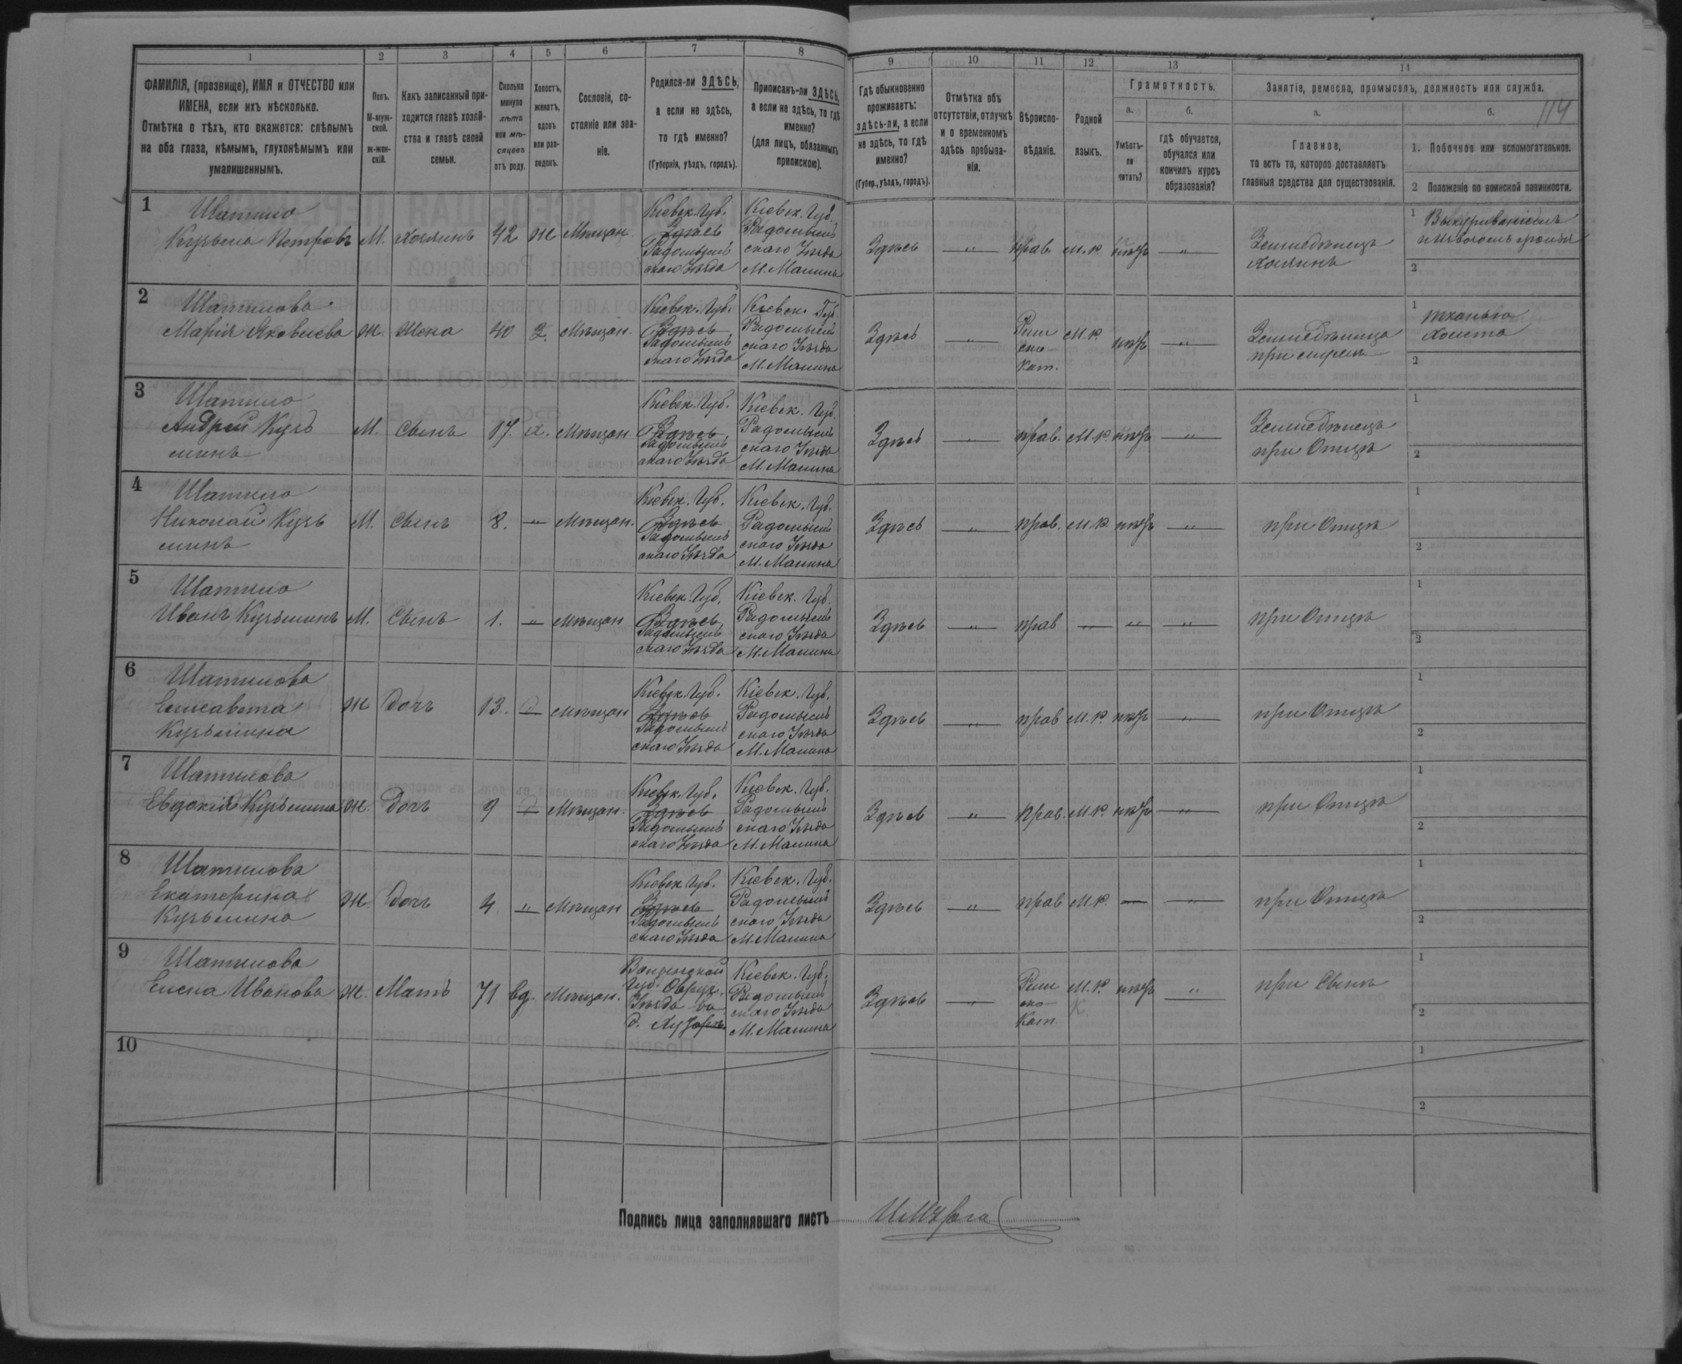 1 2 3 4 5 6 7 8
ФАМИЛІЯ, (прозвище), ИМЯ и ОТЧЕСТВО или
ИМЕНА, если ихъ нѣсколько.
Отмѣтка о тѣхъ, кто окажется: слѣпымъ
на оба глаза, нѣмымъ, глухонѣмымъ или
умалишеннымъ.
Полъ.
М-муж-
ской.
ж-жен-
скій.
Какъ записанный при-
ходится главѣ хозяй-
ства и главѣ своей
семьи.
Сколько
минуло
лѣтъ
или мѣ-
сяцевъ
отъ роду.
Холостъ,
женатъ,
вдовъ
или раз-
веденъ.
Сословіе, со-
стояніе или зва-
ніе.
Родился-ли ЗДѢСЬ,
а если не здѣсь,
то гдѣ именно?
(Губернія, уѣздъ, городъ).
Приписанъ-ли ЗДѢСЬ,
а если не здѣсь, то гдѣ
именно?
(для лицъ, обязанныхъ
припискою).
9 10 11 12 13 14
114
Гдѣ обыкновенно
проживаетъ:
здѣсь-ли, а если
не здѣсь, то гдѣ
именно?
(Губер., уѣздъ, городъ).
Отмѣтка объ
отсутствіи, отлучкѣ
и о временномъ
здѣсь пребыва-
ніи.
Вѣроиспо-
вѣданіе.
Родной
языкъ.
Грамотность.
а.
Умѣетъ-
ли
читать?
б.
гдѣ обучается,
обучался или
кончилъ курсъ
образованія?
Занятіе, ремесло, промыселъ, должность или служба.
а.
Главное,
то есть то, которое доставляетъ
главныя средства для существованія.
б.
1. Побочное или вспомогательное.
2 Положеніе по воинской повинности.
1
Шатило
Кузьма Петровъ М. хозяинъ 42 ж Мѣщан.
Кіевск. Губ.
Здѣсь
Радомысль
скаго Уѣзда
Кіевск. Губ.
Радомысль
скаго Уѣзда
М. Малина
Здѣсь " прав. м.р "
Земледѣлецъ
хозяинъ
1
2
2
Шатилова
Марія Яковлева ж. жена 40 з. Мѣщан.
Кіевск. Губ.
Здѣсь
Радомысль
скаго Уѣзда
Кіевск. Губ.
Радомысль
скаго Уѣзда
М. Малина
Здѣсь "
Рим
ско-
Кат.
м.р "
Земледѣлица
при
1
тканьё
холста
2
3
Шатило
Андрей Кузь
минъ
М. Сынъ 17. х. Мѣщан.
Кіевск. Губ.
Здѣсь
Радомысль
скаго Уѣзда
Кіевск. Губ.
Радомысль
скаго Уѣзда
М. Малина
Здѣсь " прав. м.р "
Земледѣлецъ
при Отцѣ
1
2
4
Шатило
Николай Кузь
минъ
М. Сынъ 8. " Мѣщан.
Кіевск. Губ.
Здѣсь
Радомысль
скаго Уѣзда
Кіевск. Губ.
Радомысль
скаго Уѣзда
М. Малина
Здѣсь " прав. м.р "
при Отцѣ
1
2
5
Шатило
Иванъ Кузьминъ М. Сынъ 1. " Мѣщан
Кіевск. Губ.
Здѣсь
Радомысль
скаго Уѣзда
Кіевск. Губ.
Радомысль
скаго Уѣзда
М. Малина
Здѣсь " прав " " "
при Отцѣ
1
2
6
Шатилова
Елисавета
Кузьмина
ж Дочь 13. Мѣщан
Кіевск. Губ.
Здѣсь
Радомысль
скаго Уѣзда
Кіевск. Губ.
Радомысль
скаго Уѣзда
М. Малина
Здѣсь " прав м.р "
при Отцѣ
1
2
7
Шатилова
Евдокія Кузьмина ж. Дочь 9 Мѣщан.
Кіевск. Губ.
Здѣсь
Радомысль
скаго Уѣзда
Кіевск. Губ.
Радомысль
скаго Уѣзда
М. Малина
Здѣсь " прав. м.р "
при Отцѣ
1
2
8
Шатилова
Екатерина
Кузьмина
ж Дочь 4 " Мѣщан
Кіевск. Губ.
Здѣсь
Радомысль
скаго Уѣзда
Кіевск. Губ.
Радомысль
скаго Уѣзда
М. Малина
Здѣсь " прав м.р. — "
при Отцѣ
1
2
9
Шатилова
Елена Иванова ж. Мать 71 вд. Мѣщан.
Волынской
Губ. Овруч.
Уѣзда
д.
Кіевск. Губ.
Радомысль
скаго Уѣзда
М. Малина
Здѣсь "
Рим
ско-
Кат
м.р. "
при Сынѣ
1
2
10
1
2
Подпись лица заполнявшаго листъ